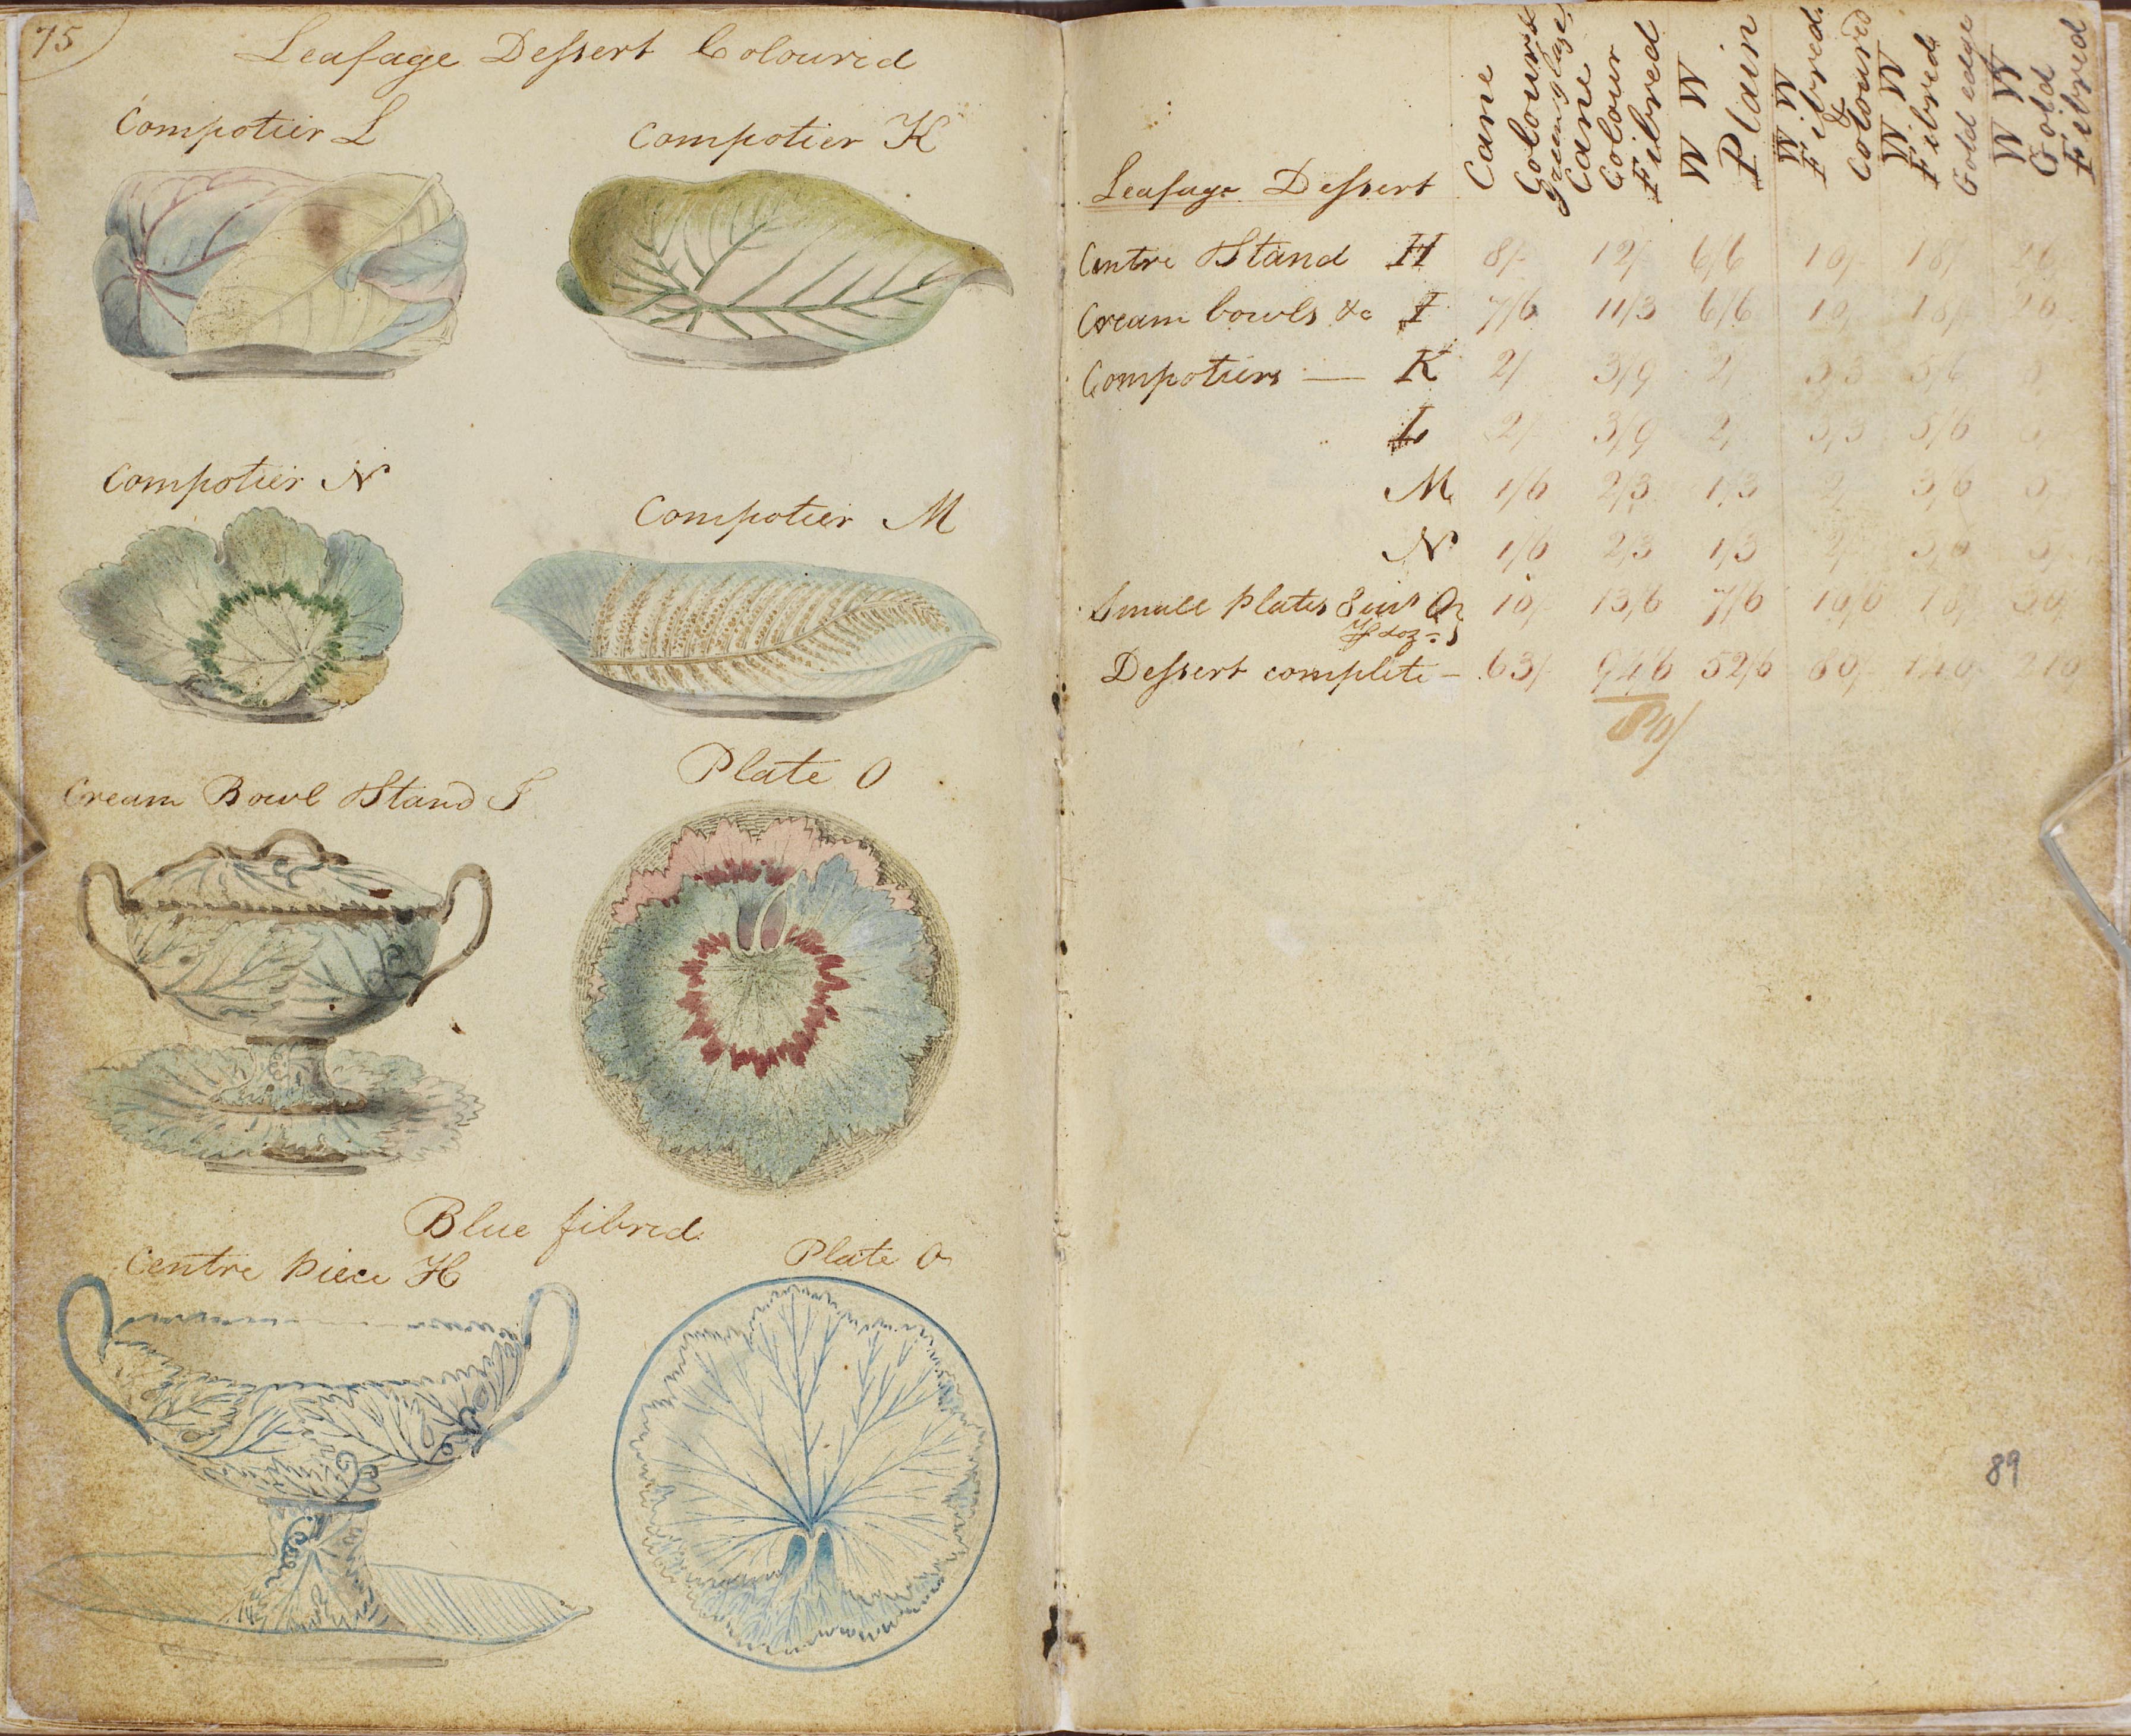 75
Leafage Dessert Coloured
Compotier L
Compotier K
Compotier N
Compotier M
Cream Bowl Stand I
Plate O
Blue fibred
Centre piece H
Plate O
Leafage Dessert
Cane Coloured Green glaze
Cane Colour Fibred
W W Plain
W W Fibred & Coloured
W W Fibred Gold edge
W W Gold Fibred
Centre Stand H 8/- 12/- 6/6 10/ 18/
Cream bowls &c I 7/6 11/3 6/6 10/ 18/
Compotiers — K 2/ 3/9 2/ 3/3 5/6
L 2/ 3/9 2/ 3/3 5/6
M 1/6 2/3 1/3 2/
N 1/6 2/3 1/3 2/
Small plates 8 in O 10/ 13/6 7/6 10/6
doz
Dessert complete — 63/- 94/6 52/6 80/- 210
89